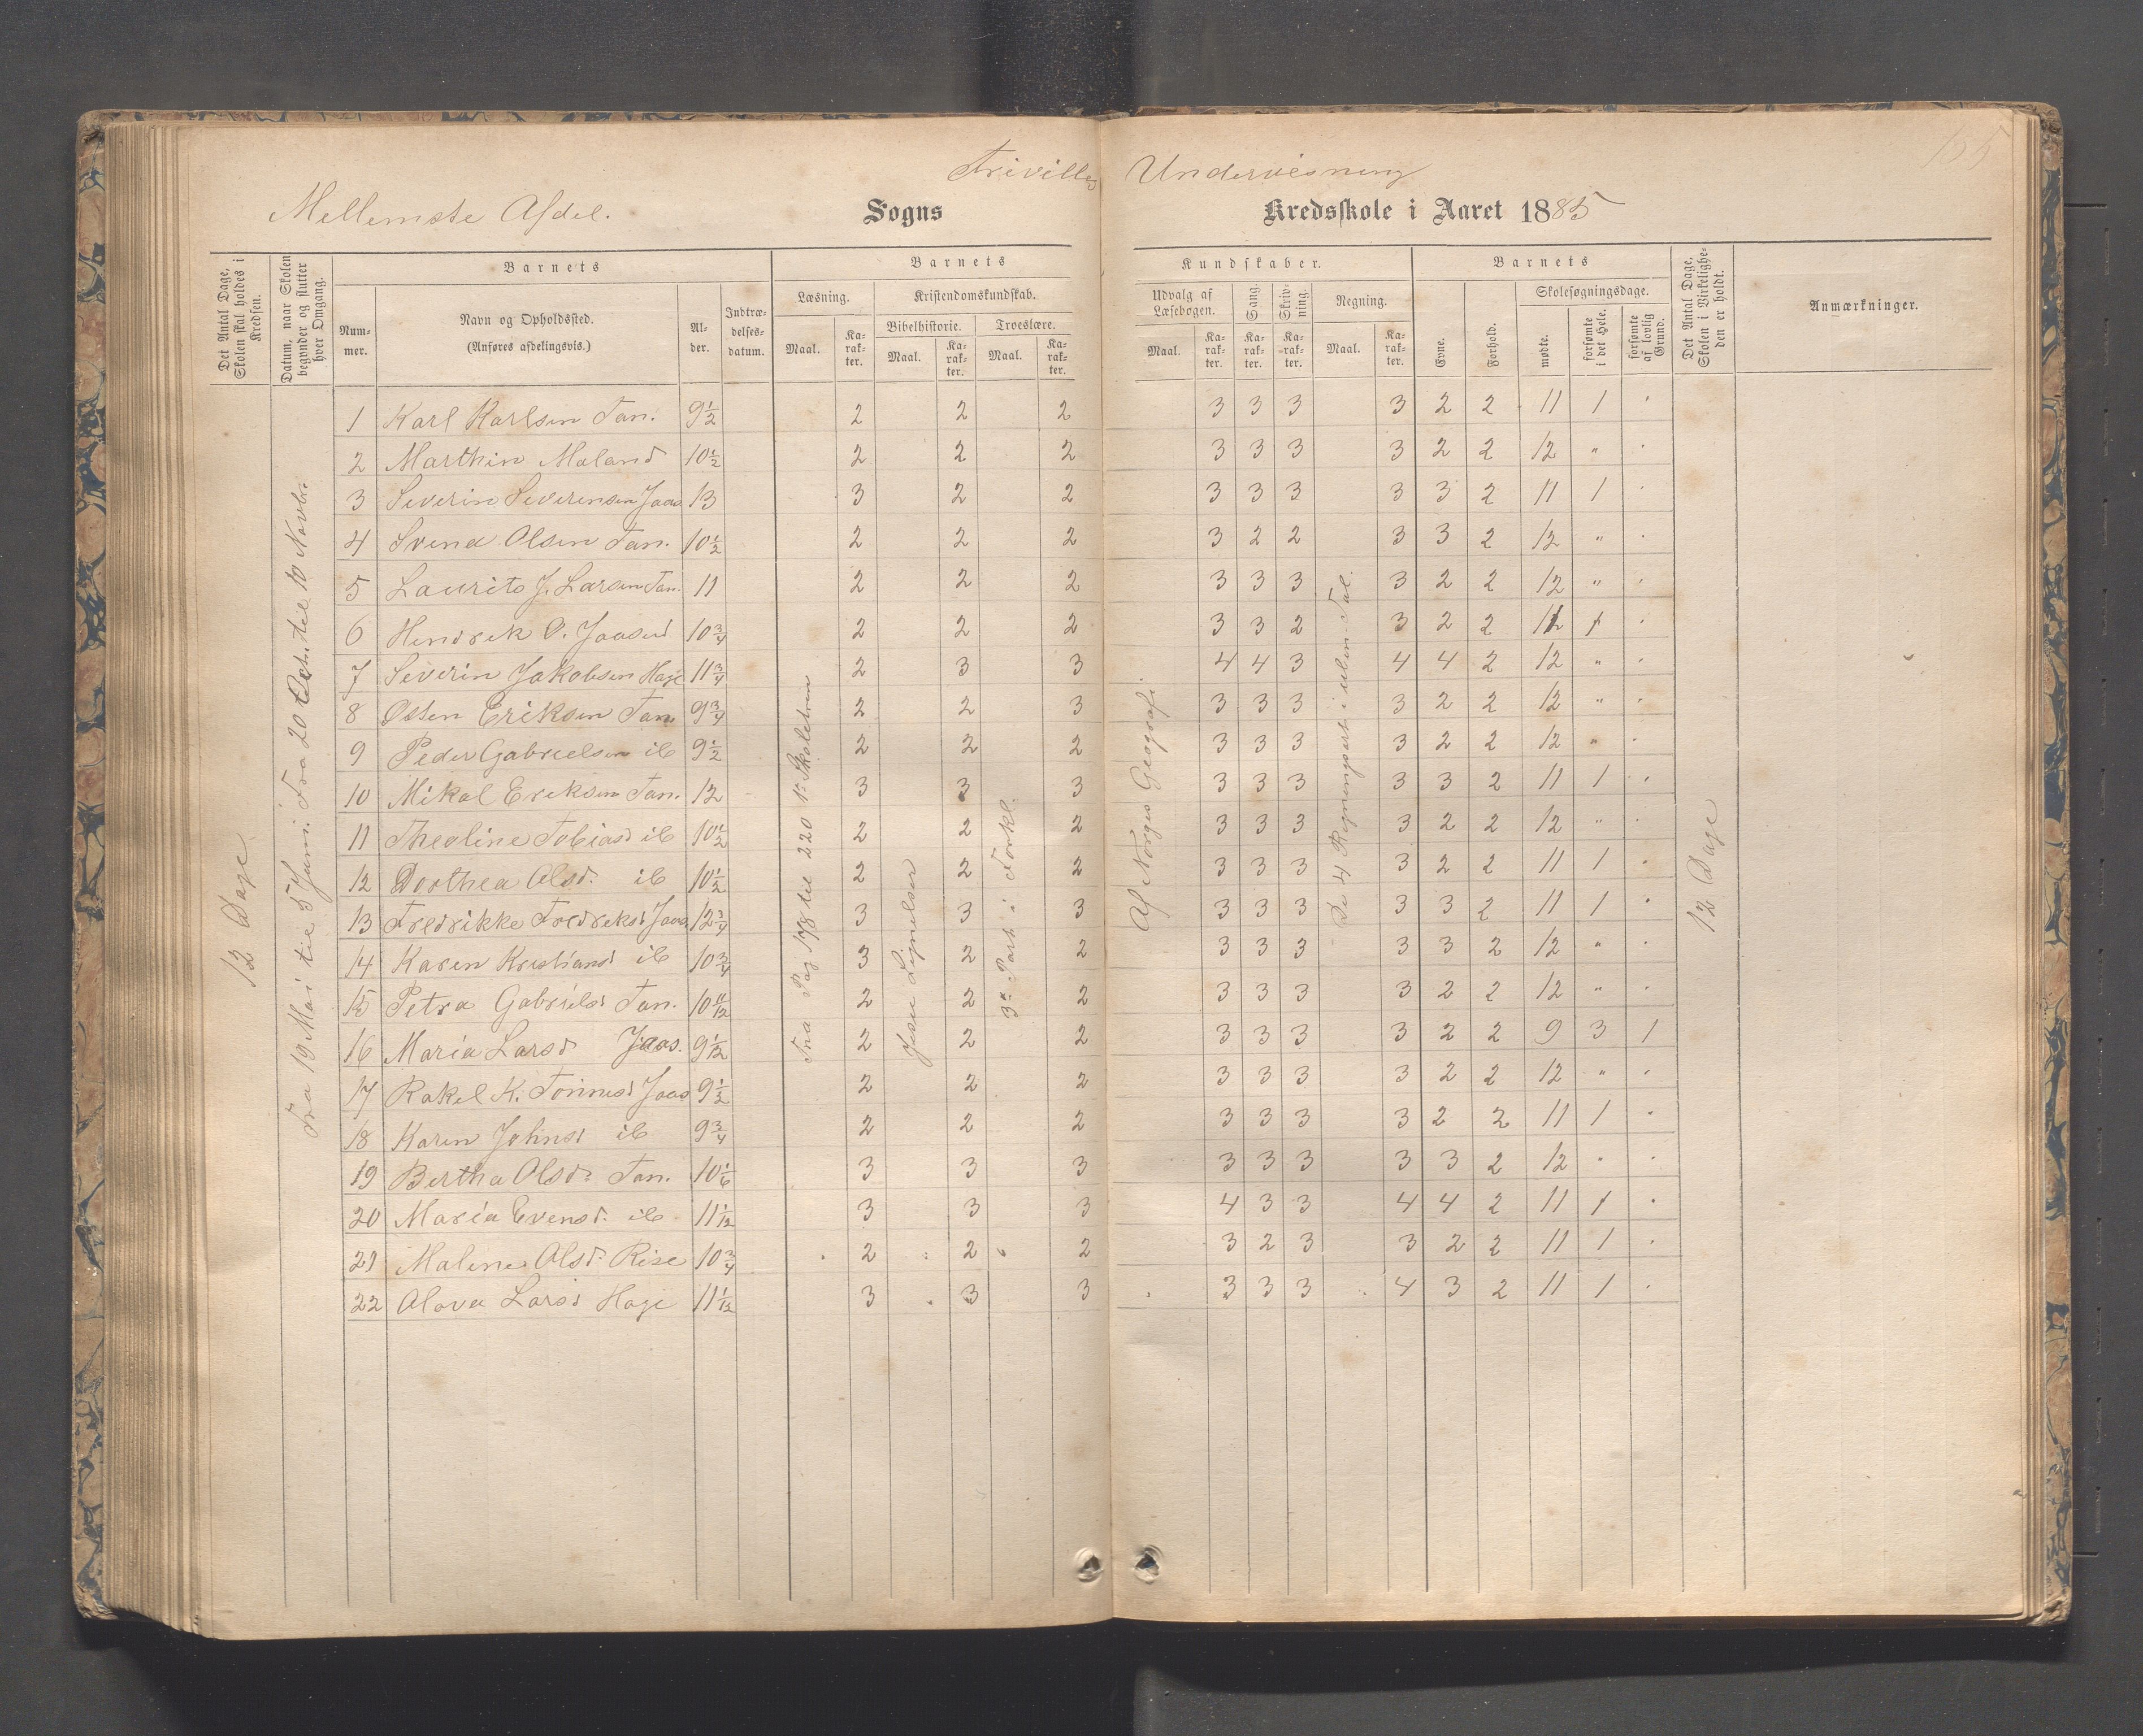 155
Frivillig Undervisning
Mellemste Afdel. Sogns Kredsskole i Aaret 1885
Det Antal Dage, Skolen skal holdes i Kredsen.
Datum, naar Skolen begynder og slutter hver Omgang.
Barnets
Nummer.
Navn og Opholdssted. (Anføres afdelingsvis.)
Alder.
Indtrædelsesdatum.
Barnets Kundskaber.
Læsning. Maal. Karakter.
Kristendomskundskab.
Bibelhistorie. Maal. Karakter.
Troeslære. Maal. Karakter.
Udvalg af Læsebogen. Maal. Karakter.
Sang. Karakter.
Skrivning. Karakter.
Regning. Maal. Karakter.
Barnets
Evne.
Forhold.
Skolesøgningsdage.
mødte.
forsømte i det Hele.
forsømte af lovlig Grund.
Det Antal Dage, Skolen i Virkeligheden er holdt.
Anmærkninger.
12 Dage
Fra 19 Mai til 5 Juni. Fra 20 Octr. til 10 Novbr.
Fra Pag 178 til 220 i Skoletrin
Jesu Lignelser
3die Part i Forkl.
Af Norges Geografi
De 4 Regningsart i ulben Tal.
12 Dage
1 Karl Karlsen Tan. 9 1/2 2 2 2 3 3 3 3 2 2 11 1 .
2 Marthin Moland 10 1/2 2 2 2 3 3 3 3 2 2 12 " .
3 Severin Severensen Jaas 13 3 2 2 3 3 3 3 3 2 11 1 .
4 Svend Olsen Tan. 10 1/2 2 2 2 3 2 2 3 3 2 12 " .
5 Laurits J. Larsen Tan. 11 2 2 2 3 3 3 3 2 2 12 " .
6 Hendrek O. Jaasund 10 3/4 2 2 2 3 3 2 3 2 2 11 1 .
7 Severin Jakobsen Hage 11 3/4 2 3 3 4 4 3 4 4 2 12 " .
8 Osten Eriksen Tan 9 3/4 2 2 3 3 3 3 3 2 2 12 " .
9 Peder Gabrielsen ib 9 1/2 2 2 2 3 3 3 3 2 2 12 " .
10 Mikal Ereksen Tan. 12 3 3 3 3 3 3 3 3 2 11 1 .
11 Theoline Tobiasd ib 10 1/2 2 2 2 3 3 3 3 2 2 12 " .
12 Dorthea Olsd. ib 10 1/2 2 2 2 3 3 3 3 2 2 11 1 .
13 Fredrikke Fredreksd Jaas 12 3/4 3 3 3 3 3 3 3 3 2 11 1 .
14 Karen Kristiansd ib 10 3/4 3 2 2 3 3 3 3 3 2 12 " .
15 Petra Gabrielsd Tan. 10 11/12 2 2 2 3 3 3 3 2 2 12 " .
16 Maria Larsd Jaas. 9 1/12 2 2 2 3 3 3 3 2 2 9 3 1
17 Rakel K. Tønnesd Jaas 9 1/2 2 2 2 3 3 3 3 2 2 12 " .
18 Karen Johnsd ib 9 3/4 2 2 2 3 3 3 3 2 2 11 1 .
19 Bertha Olsd. Tan. 10 1/6 3 3 3 3 3 3 3 3 2 12 " .
20 Maria Evensd. ib 11 1/12 3 3 3 4 3 3 4 4 2 11 1 .
21 Malene Olsd. Rise 10 3/4 2 2 2 3 2 3 3 2 2 11 1 .
22 Olava Larsd Hage 11 1/12 3 3 3 3 3 3 4 3 2 11 1 .